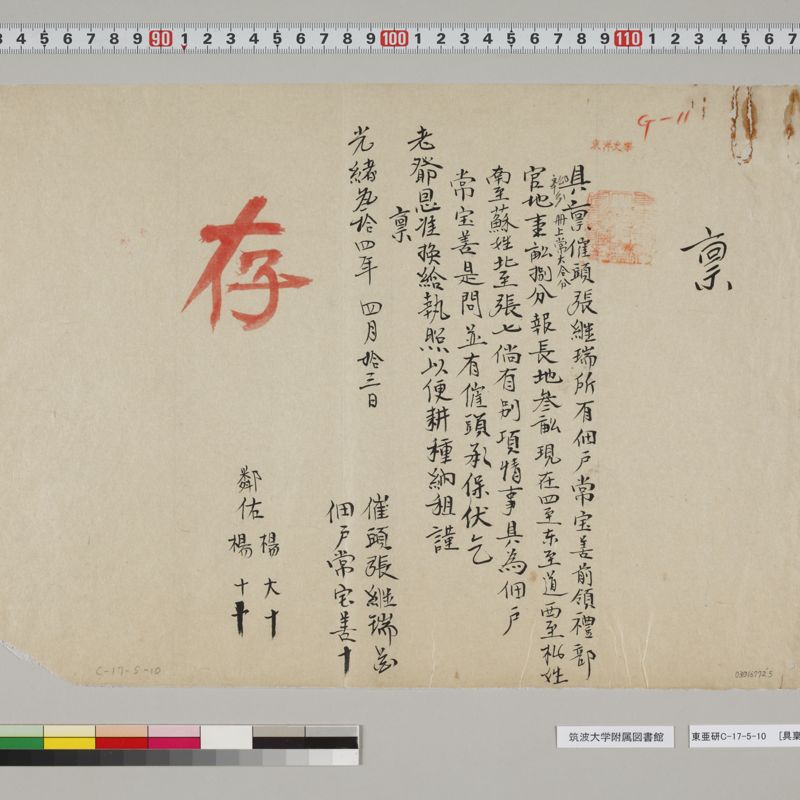 稟
具稟催頭張継瑞所有佃戶常宝善前領禮部
官地壹畝捌分報長地叁畝現在四至东至道西至杨姓
冊上常大
南至蘇姓北至張七倘有别項情事具為佃戶
常宝善是問並有催頭承保伏乞
老爺恩准換給執照以便耕種納租謹
稟
光緒叁拾四年 四月拾三日
催頭張継瑞
佃戶常宝善十
鄰佑
楊大十
楊十十
存
G-11
東洋文學
C-17-5-10
筑波大学附属図書館
東亜研C-17-5-10 [具稟
3 4 5 6 7 8 9 90 1 2 3 4 5 6 7 8 9 100 1 2 3 4 5 6 7 8 9 110 1 2 3 4 5 6 7